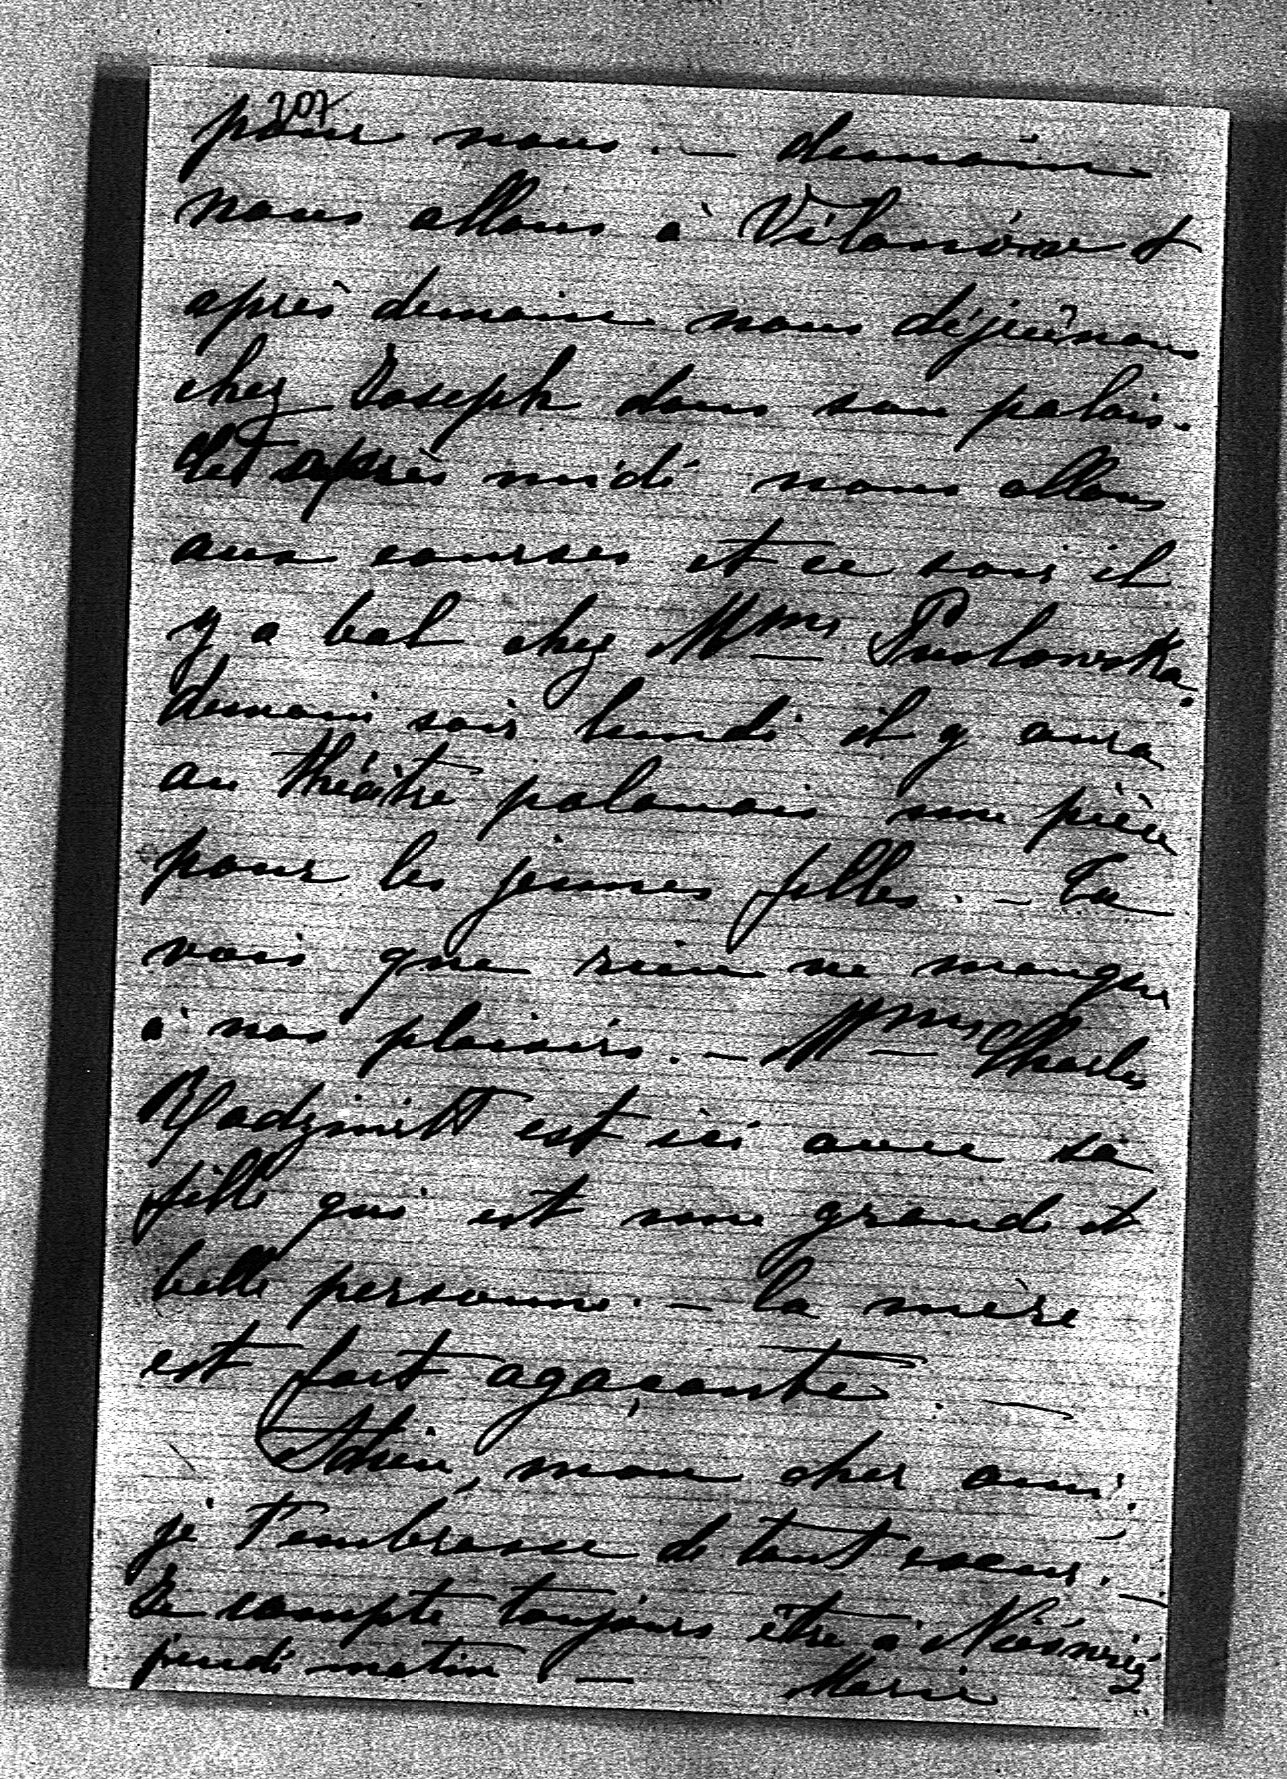 207
pour nous. — demain
nous allons à Vilanów &
après demain nous déjeûnons
chez Joseph dans son palais.
Cet après midi nous allons
aux courses et ce soir il
y a bal chez Mme Puslowska,
demain soir lundi il y aura
au théâtre polonais une pièce
pour les jeunes filles. — Tu
vois que rien ne manque
à nos plaisirs. — Mme Charles
Radziwill est ici avec sa
fille qui est une grande et
belle personne. — la mère
est fort agaçante. —
Adieu, mon cher ami.
je t'embrasse de tout coeur. —
Je compte toujours être à Nieśwież
jeudi matin — Marie